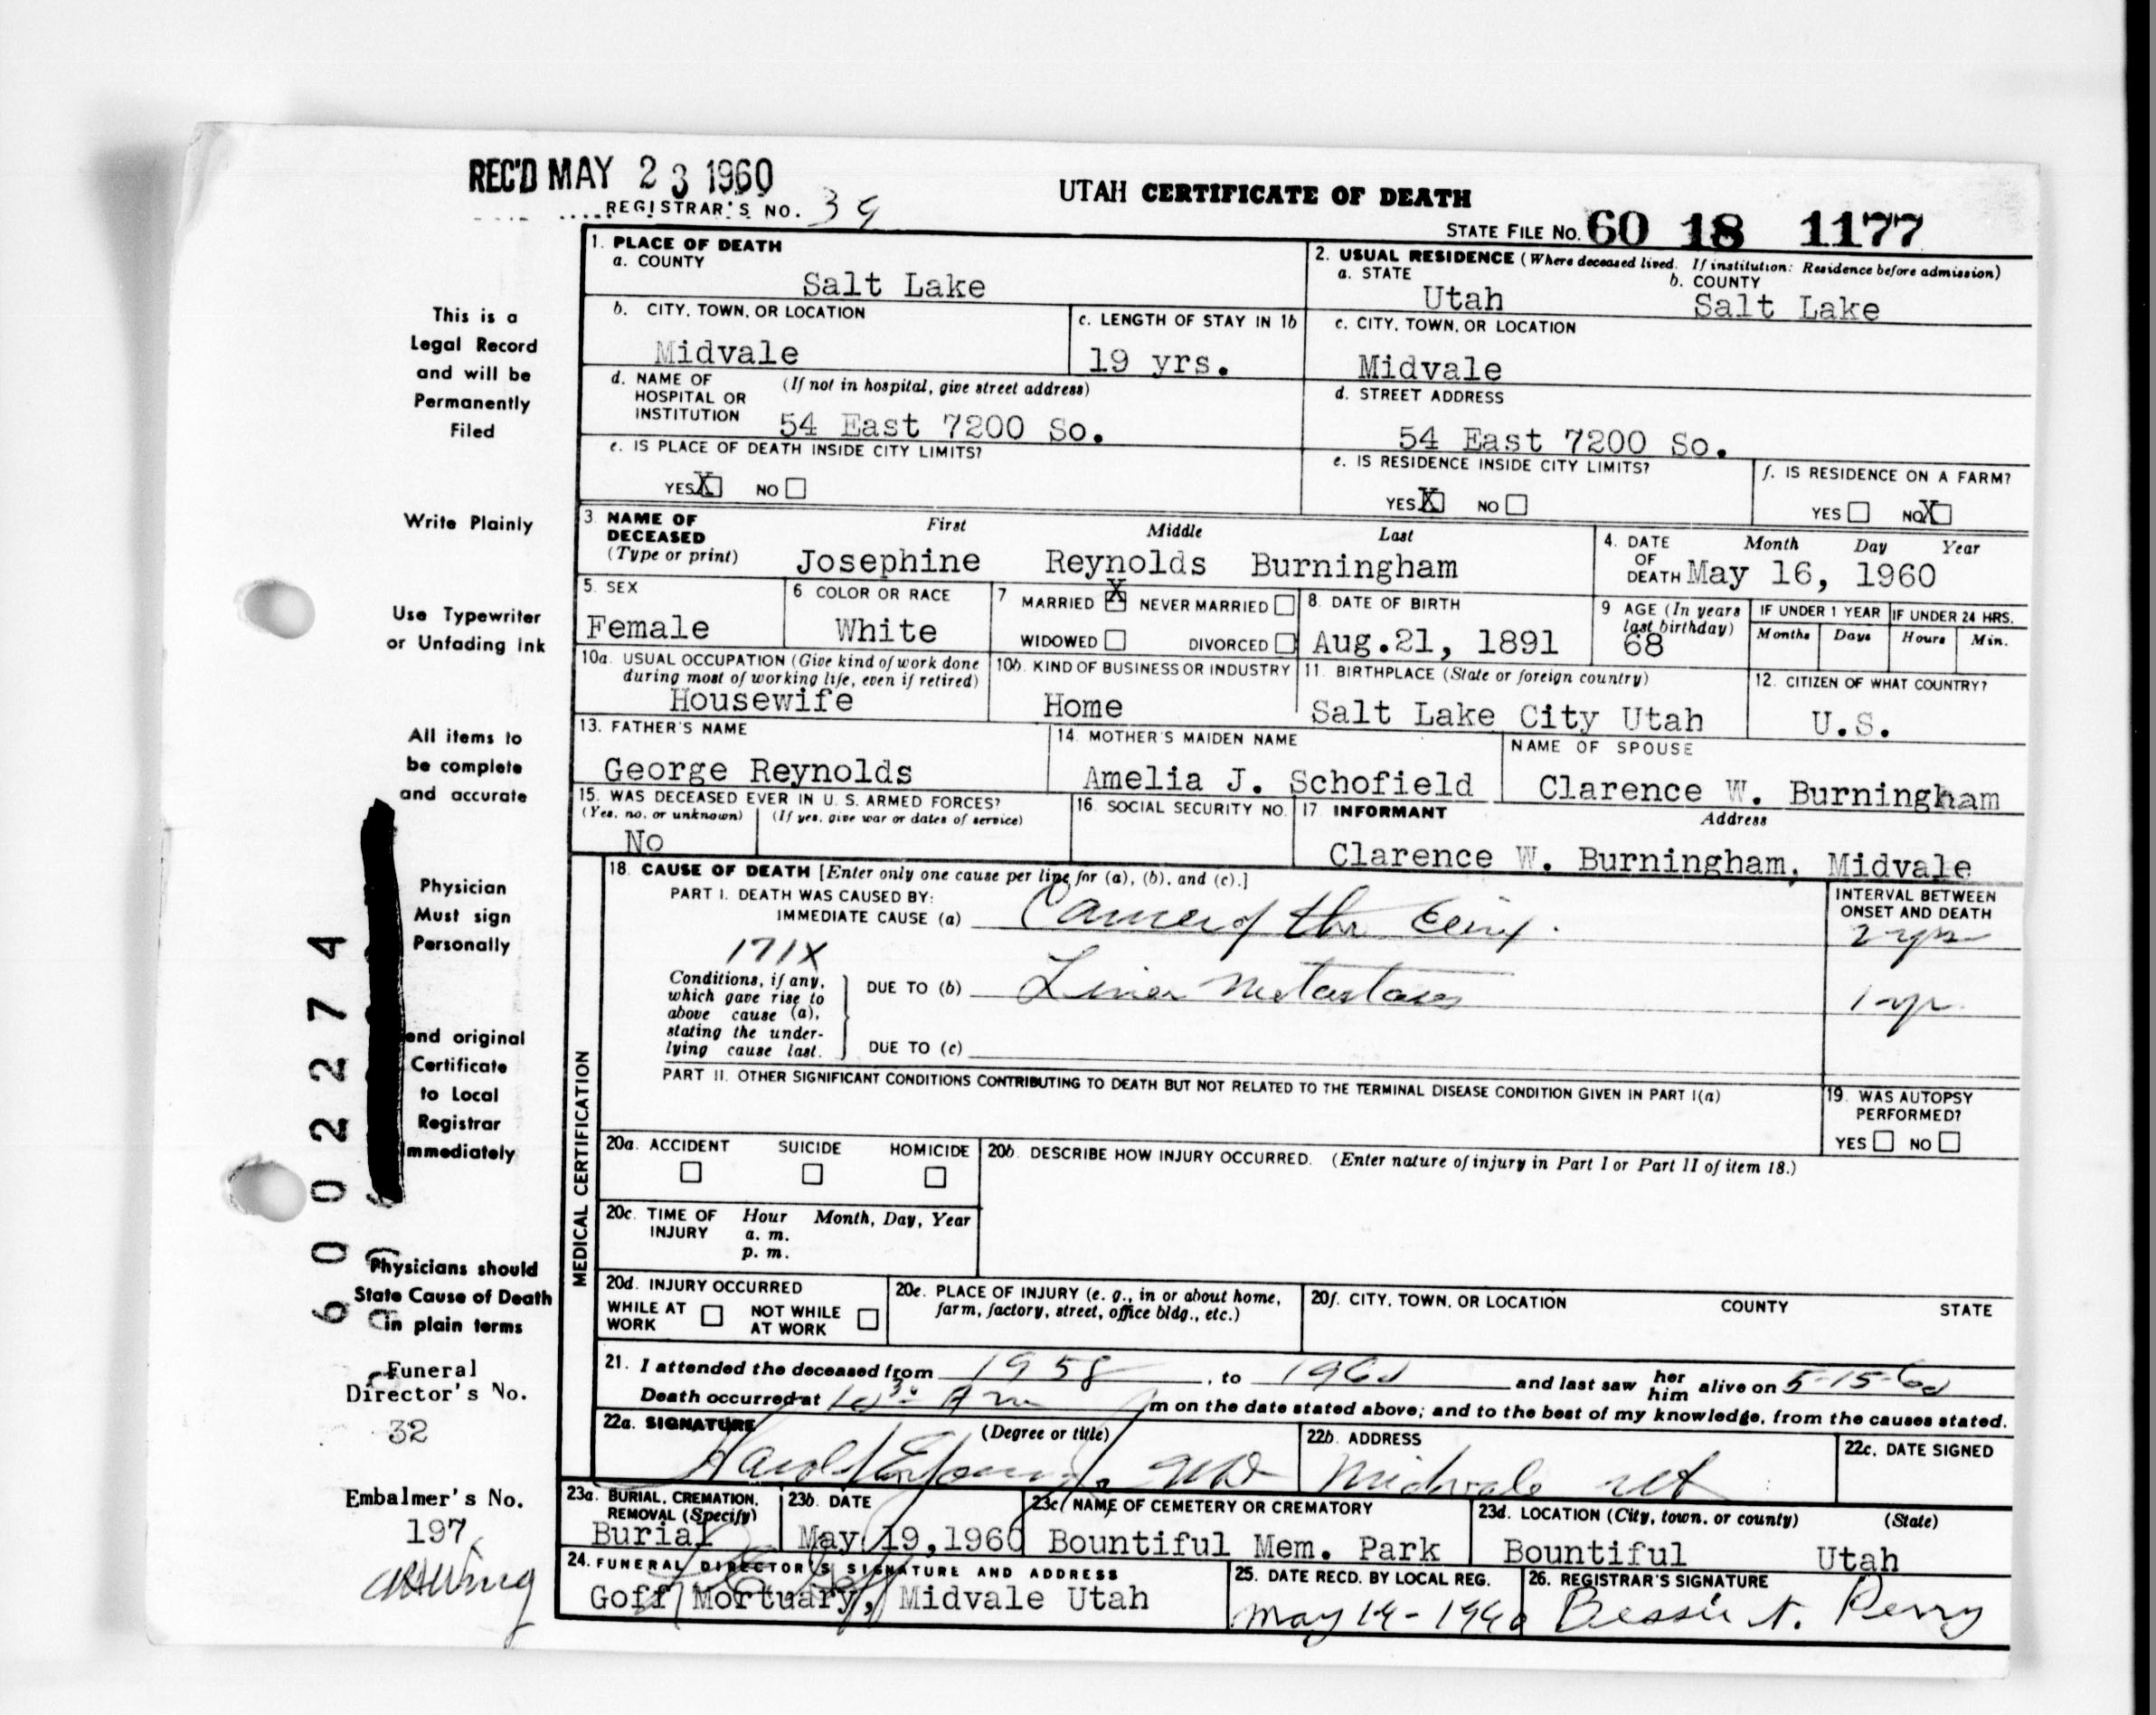 REC'D MAY 23 1960
REGISTRAR'S NO. 39
UTAH CERTIFICATE OF DEATH
STATE FILE NO. 60 18 1177
1. PLACE OF DEATH
a. COUNTY
Salt Lake
2. USUAL RESIDENCE (Where deceased lived. If institution: Residence before admission)
a. STATE
Utah
b. COUNTY
Salt Lake
b. CITY, TOWN, OR LOCATION
Midvale
c. LENGTH OF STAY IN 1b
19 yrs.
c. CITY, TOWN, OR LOCATION
Midvale
d. NAME OF HOSPITAL OR INSTITUTION (If not in hospital, give street address)
54 East 7200 So.
d. STREET ADDRESS
54 East 7200 So.
e. IS PLACE OF DEATH INSIDE CITY LIMITS?
YES X NO
e. IS RESIDENCE INSIDE CITY LIMITS?
YES X NO
f. IS RESIDENCE ON A FARM?
YES NO X
3. NAME OF DECEASED (Type or print)
First Middle Last
Josephine Reynolds Burningham
4. DATE OF DEATH
Month Day Year
May 16, 1960
5. SEX
Female
6 COLOR OR RACE
White
7 MARRIED X NEVER MARRIED
WIDOWED DIVORCED
8. DATE OF BIRTH
Aug.21, 1891
9 AGE (In years last birthday)
68
IF UNDER 1 YEAR
Months Days
IF UNDER 24 HRS.
Hours Min.
10a. USUAL OCCUPATION (Give kind of work done during most of working life, even if retired)
Housewife
10b. KIND OF BUSINESS OR INDUSTRY
Home
11. BIRTHPLACE (State or foreign country)
Salt Lake City Utah
12. CITIZEN OF WHAT COUNTRY?
U.S.
13. FATHER'S NAME
George Reynolds
14. MOTHER'S MAIDEN NAME
Amelia J. Schofield
NAME OF SPOUSE
Clarence W. Burningham
15. WAS DECEASED EVER IN U. S. ARMED FORCES?
(Yes, no, or unknown) (If yes, give war or dates of service)
No
16. SOCIAL SECURITY NO.
17. INFORMANT Address
Clarence W. Burningham, Midvale
MEDICAL CERTIFICATION
18. CAUSE OF DEATH [Enter only one cause per line for (a), (b), and (c).]
PART I. DEATH WAS CAUSED BY:
IMMEDIATE CAUSE (a) Cancer of the
INTERVAL BETWEEN ONSET AND DEATH
2 yrs
171X
Conditions, if any, which gave rise to above cause (a), stating the underlying cause last.
DUE TO (b) Liver metastases
1 yr
DUE TO (c)
PART II. OTHER SIGNIFICANT CONDITIONS CONTRIBUTING TO DEATH BUT NOT RELATED TO THE TERMINAL DISEASE CONDITION GIVEN IN PART I(a)
19. WAS AUTOPSY PERFORMED?
YES NO
20a. ACCIDENT SUICIDE HOMICIDE
20b. DESCRIBE HOW INJURY OCCURRED. (Enter nature of injury in Part I or Part II of item 18.)
20c. TIME OF INJURY Hour Month, Day, Year
a. m.
p. m.
20d. INJURY OCCURRED
WHILE AT WORK NOT WHILE AT WORK
20e. PLACE OF INJURY (e. g., in or about home, farm, factory, street, office bldg., etc.)
20f. CITY, TOWN, OR LOCATION COUNTY STATE
21. I attended the deceased from 1958, to 1960 and last saw her him alive on 5-15-60
Death occurred at 10 30 A m m on the date stated above; and to the best of my knowledge, from the causes stated.
22a. SIGNATURE (Degree or title)
Harold MD
22b. ADDRESS
Midvale Ut
22c. DATE SIGNED
23a. BURIAL, CREMATION, REMOVAL (Specify)
Burial
23b. DATE
May 19,1960
23c. NAME OF CEMETERY OR CREMATORY
Bountiful Mem. Park
23d. LOCATION (City, town, or county) (State)
Bountiful Utah
24. FUNERAL DIRECTOR'S SIGNATURE AND ADDRESS
Goff Mortuary, Midvale Utah
25. DATE RECD. BY LOCAL REG.
May 19-1960
26. REGISTRAR'S SIGNATURE
Bessie N. Perry
This is a
Legal Record
and will be
Permanently
Filed
Write Plainly
Use Typewriter
or Unfading Ink
All items to
be complete
and accurate
Physician
Must sign
Personally
end original
Certificate
to Local
Registrar
mmediately
Physicians should
State Cause of Death
in plain terms
Funeral
Director's No.
32
Embalmer's No.
197
6002274